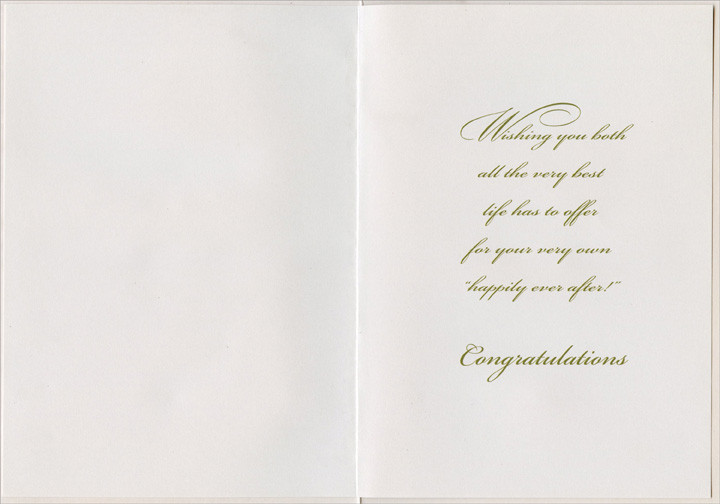 Wishing you both
all the very best
life has to offer
for your very own
"happily ever after!"
Congratulations